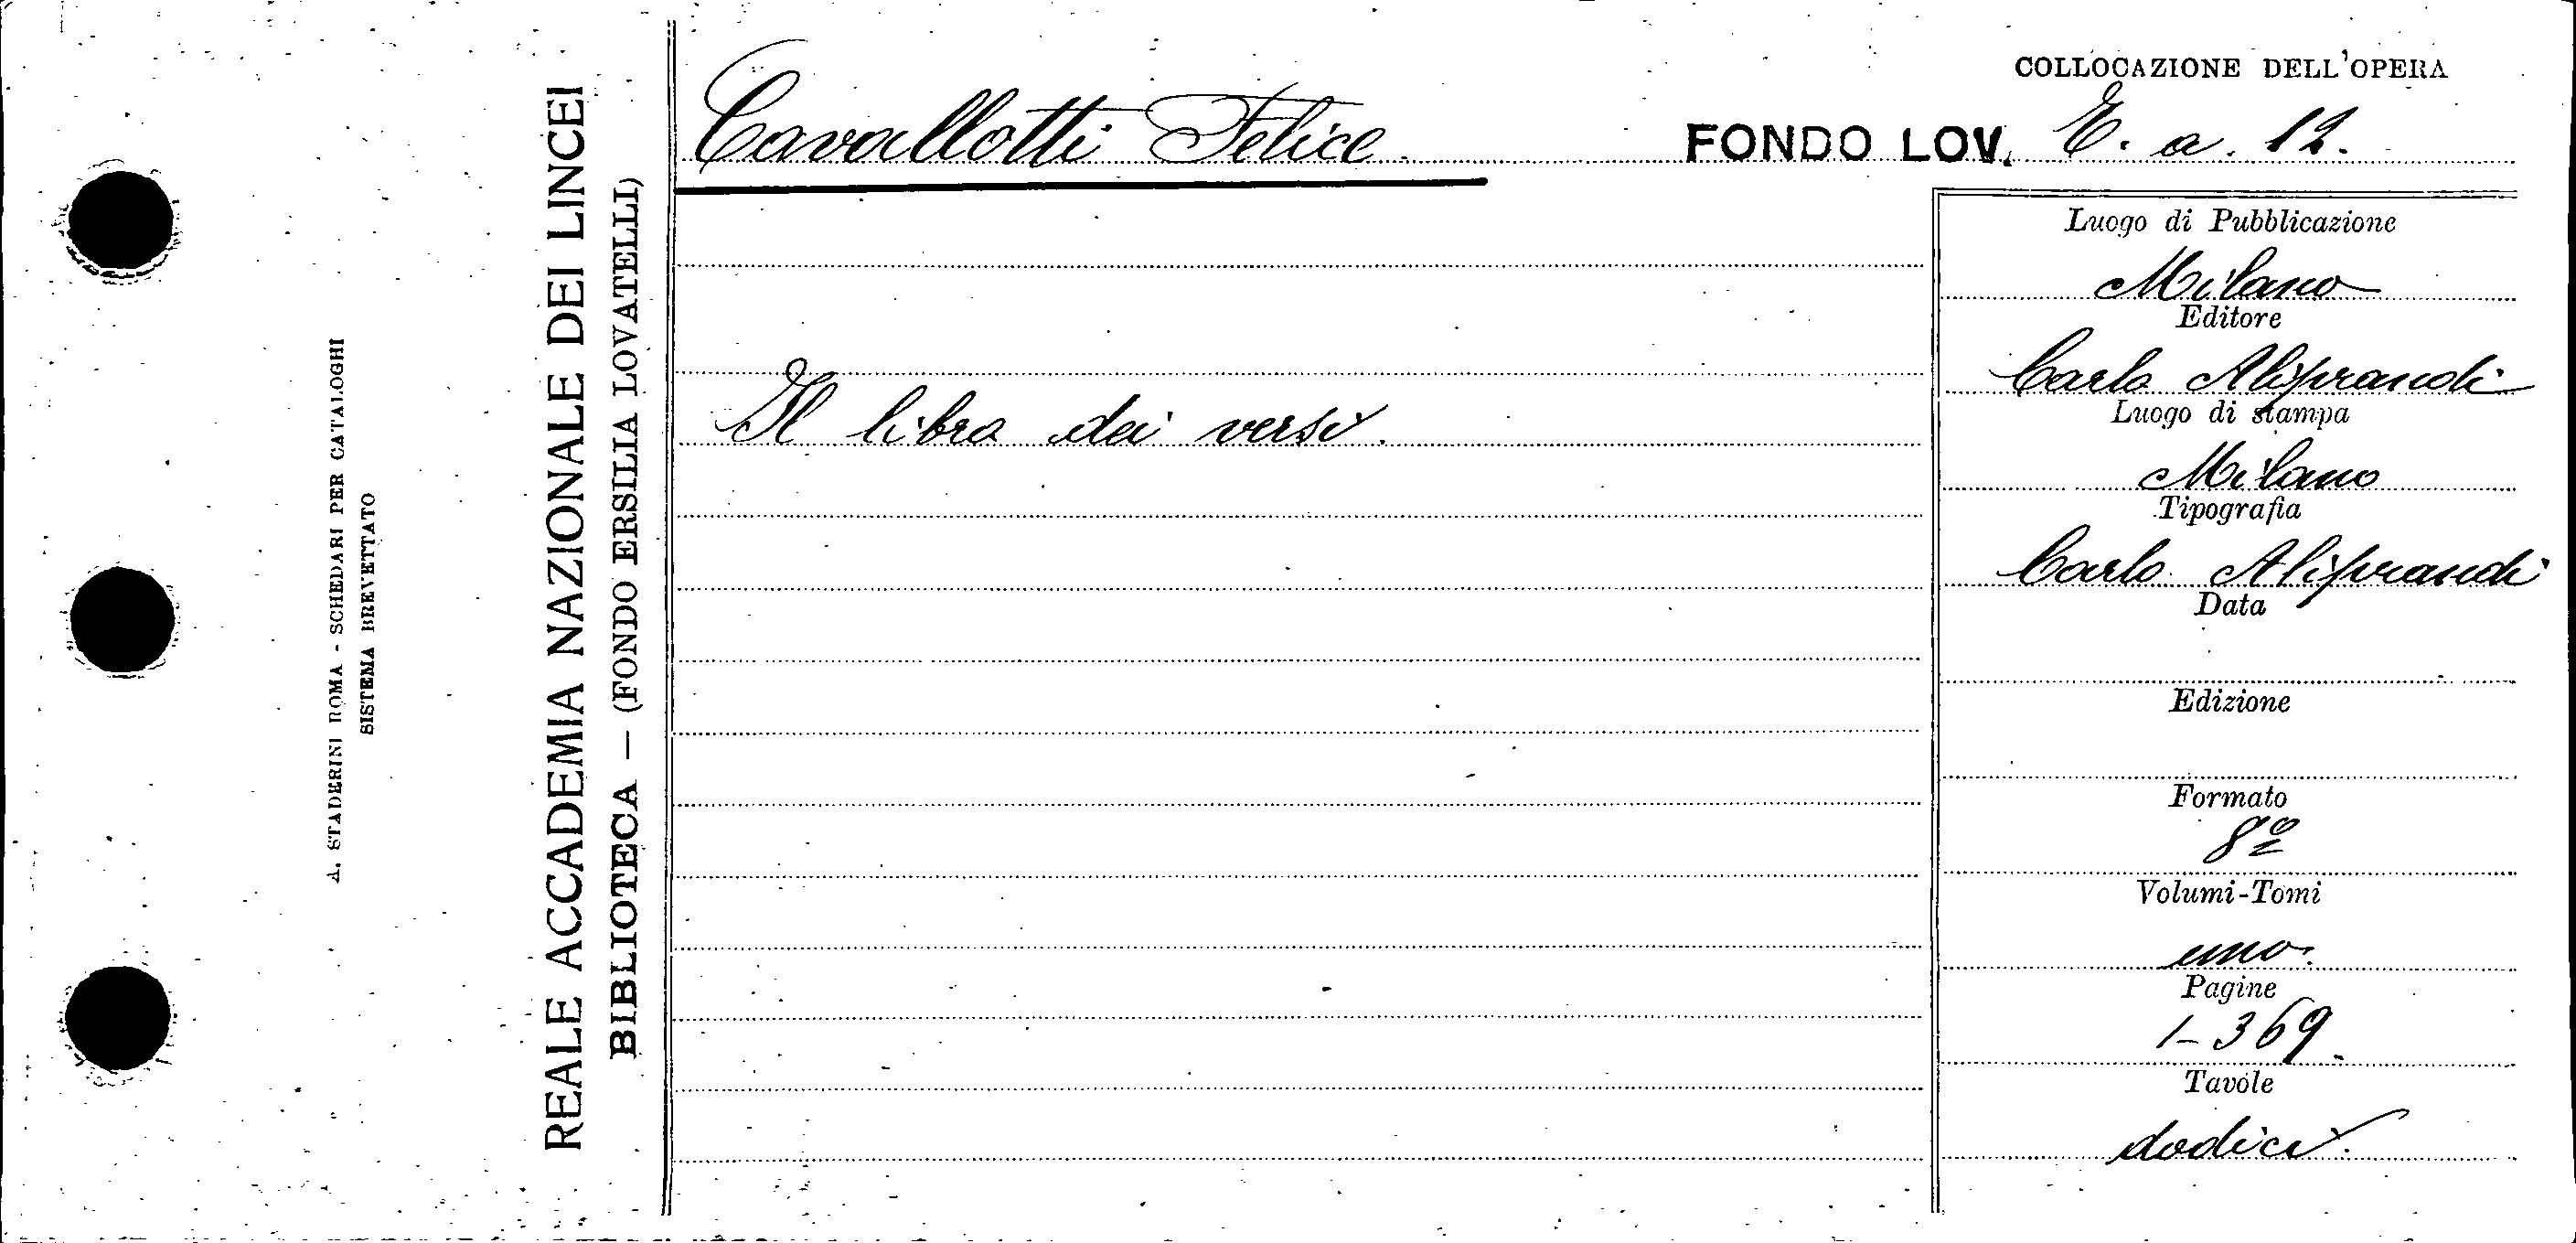 A. STADERINI ROMA - SCHEDARI PER CATALOGHI
SISTEMA BREVETTATO
REALE ACCADEMIA NAZIONALE DEI LINCEI
BIBLIOTECA — (FONDO ERSILIA LOVATELLI)
COLLOCAZIONE DELL'OPERA
Cavallotti Felice. FONDO LOV. E. a. 12.
Il libro dei versi.
Luogo di Pubblicazione
Milano
Editore
Carlo Aliprandi
Luogo di stampa
Milano
Tipografia
Carlo Aliprandi
Data
Edizione
Formato
8º
Volumi-Tomi
uno.
Pagine
1-369.
Tavole
dodici.